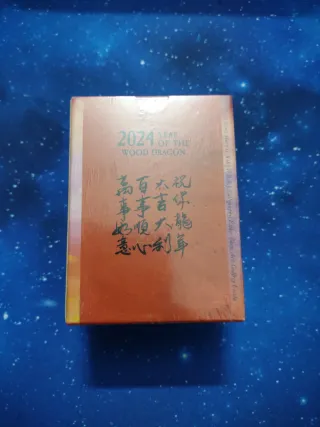 2024 YEAR
OF THE
WOOD DRAGON
祝你龍年
大吉大利
百事順心
萬事如意